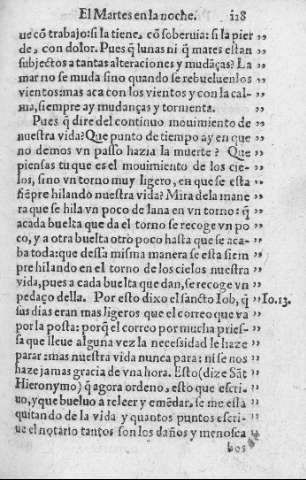 El Martes en la noche. 118
ue cõ trabajo: si la tiene, cõ soberuia: si la pier
de, con dolor. Pues q̃ lunas ni q̃ mares estan ,,
subjectos a tantas alteraciones y mudãças? La ,,
mar no se muda sino quando se rebueluen los ,,
vientos: mas aca con los vientos y con la cal- ,,
ma, siempre ay mudanças y tormenta. ,,
Pues q̃ dire del continuo mouimiento de ,,
nuestra vida? Que punto de tiempo ay en que ,,
no demos vn passo hazia la muerte? Que ,,
piensas tu que es el mouimiento de los cie- ,,
los, sino vn torno muy ligero, en que se esta ,,
siẽpre hilando nuestra vida? Mira de la mane ,,
ra que se hila vn poco de lana en vn torno: q̃ ,,
a cada buelta que da el torno se recoge vn po ,,
co, y a otra buelta otro poco hasta que se aca- ,,
ba toda: que dessa misma manera se esta siem ,,
pre hilando en el torno de los cielos nuestra ,,
vida, pues a cada buelta que dan, se recoge vn ,,
pedaço della. Por esto dixo el sancto Iob, q̃ Io. 13.
sus dias eran mas ligeros que el correo que va ,,
por la posta: porq̃ el correo por mucha pries- ,,
sa que lleue alguna vez la necessidad le haze ,,
parar: mas nuestra vida nunca para: ni se nos ,,
haze jamas gracia de vna hora. Esto (dize Sãt ,,
Hieronymo) q̃ agora ordeno, esto que escri- ,,
uo, y que bueluo a releer y emẽdar, se me esta ,,
quitando de la vida y quantos puntos escri- ,,
ue el notario tantos son los daños y menosca ,,
bos